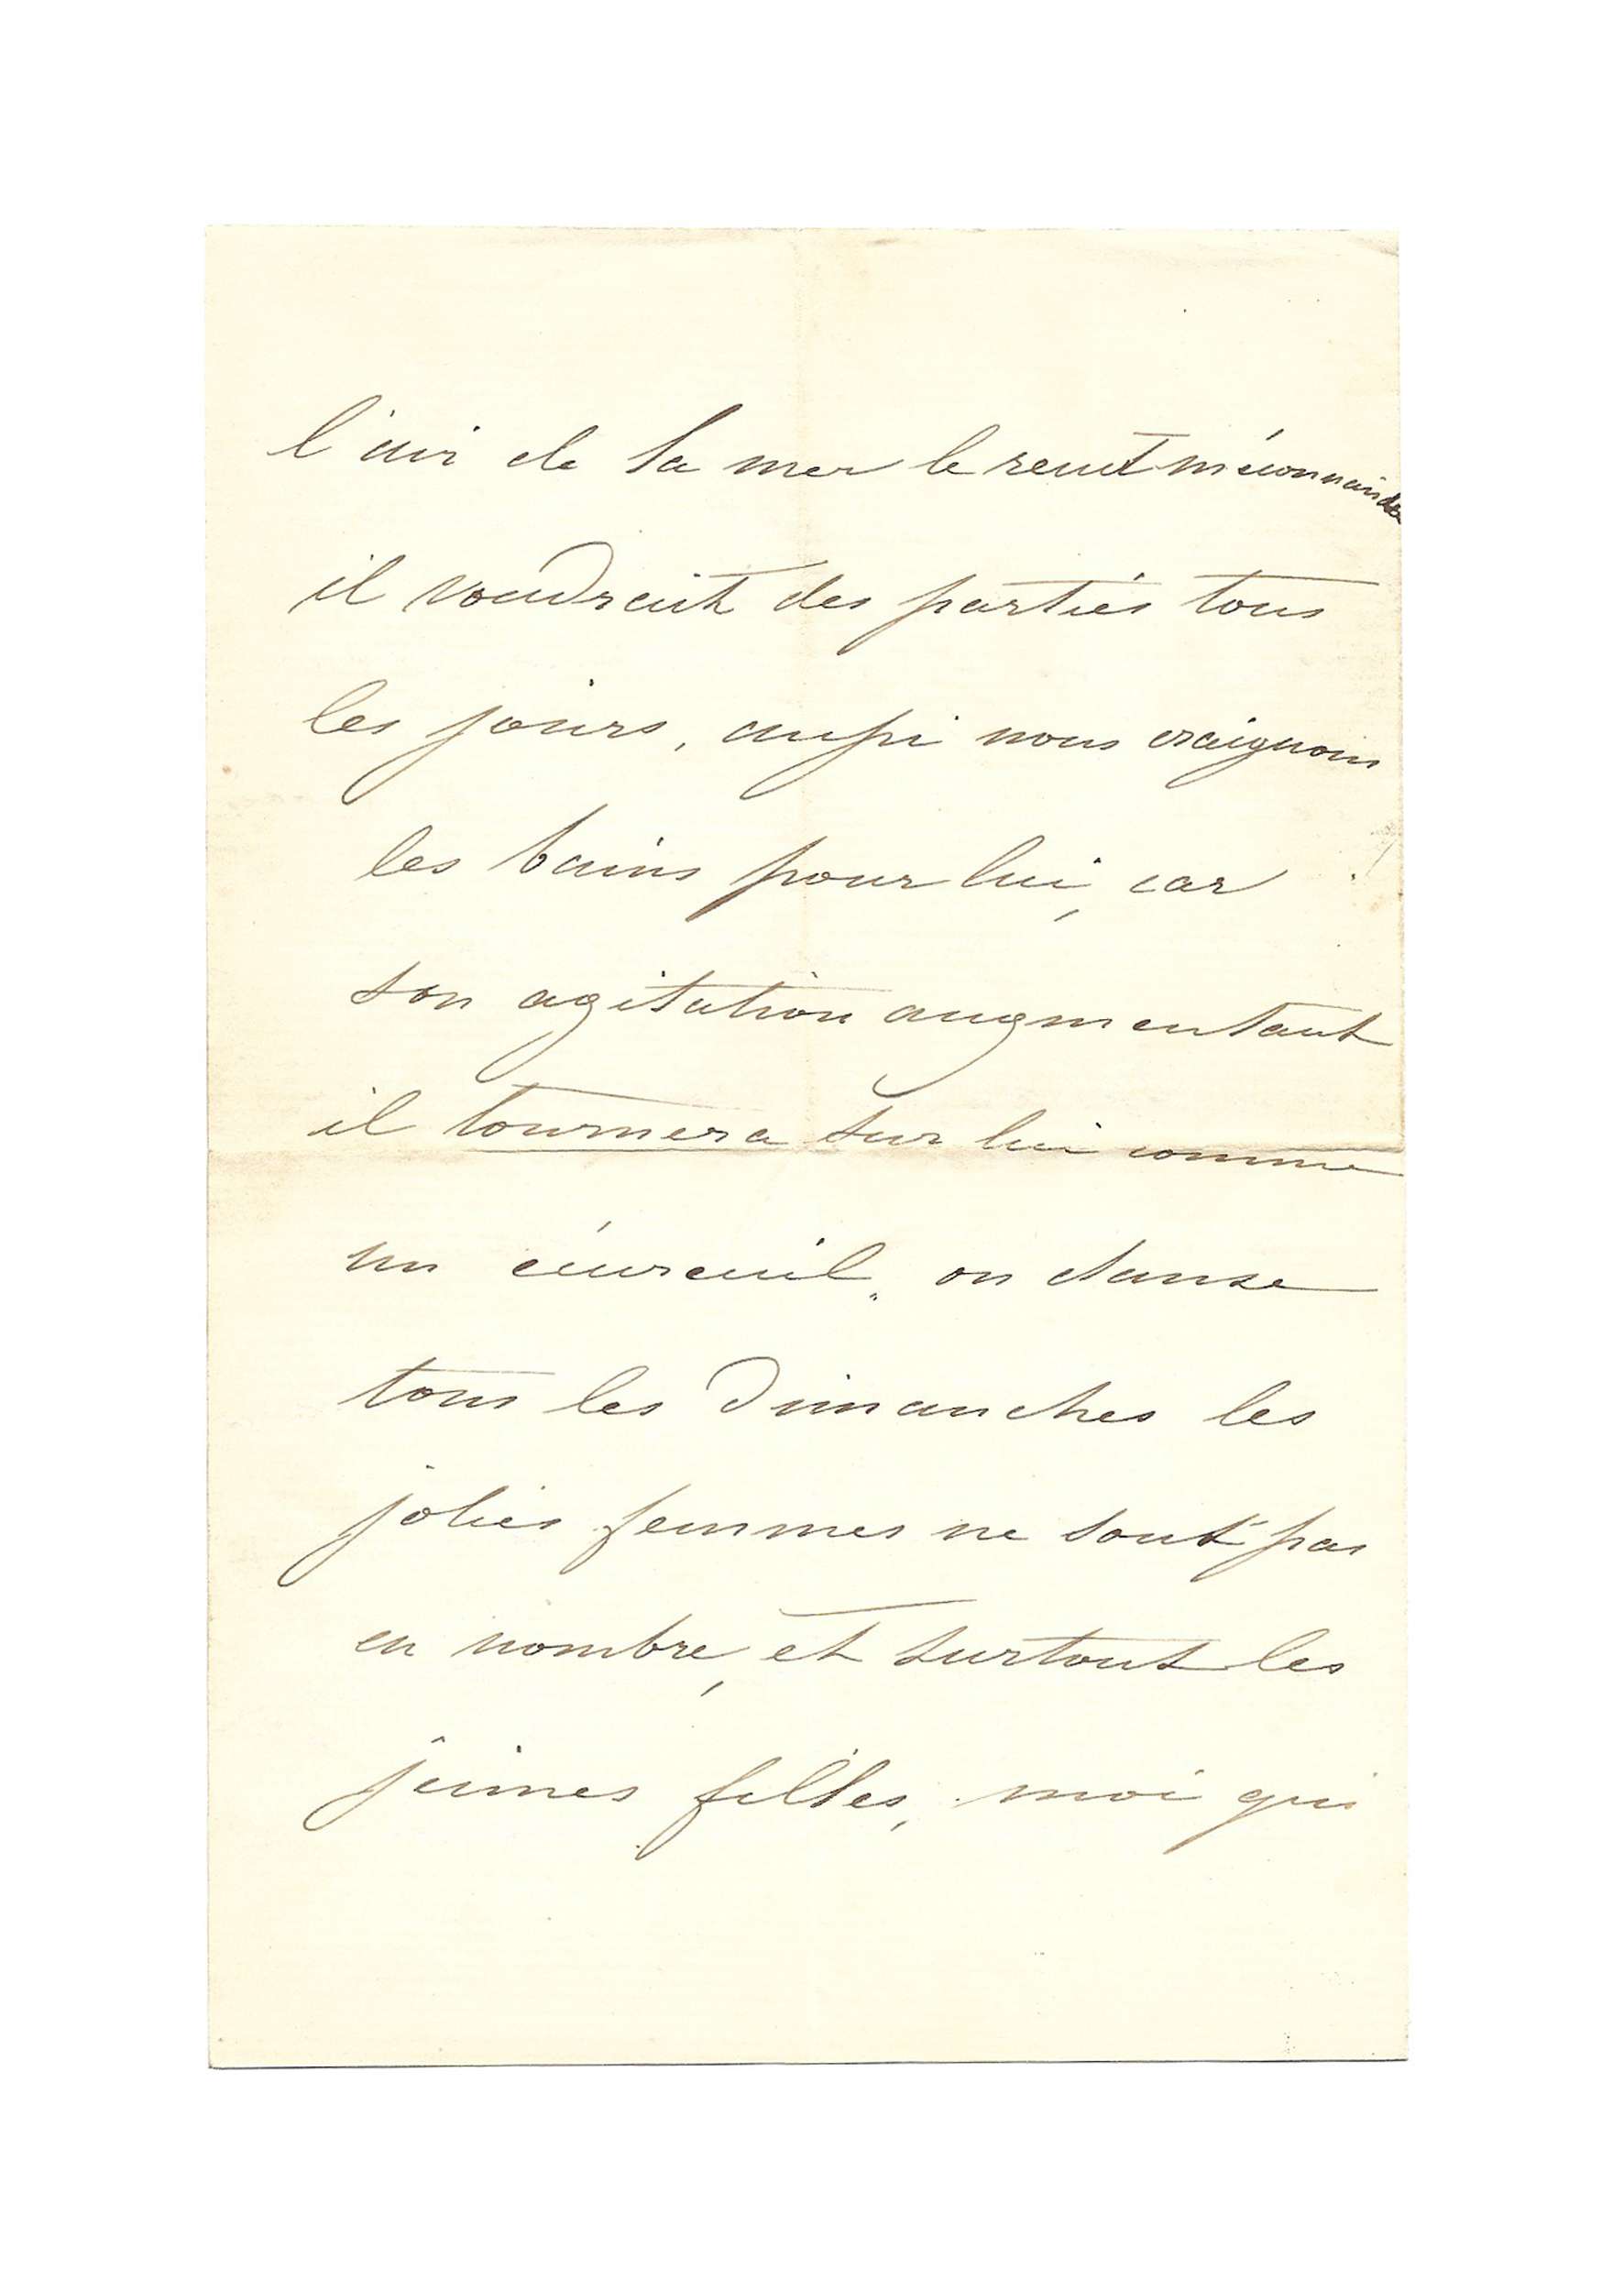 l'air de la mer le rend méconnaissable
il voudrait des parties tous
les jours, aussi nous craignons
les bains pour lui, car
son agitation augmentant
il tournera sur lui comme
un écureuil. on danse
tous les Dimanches les
jolies femmes ne sont pas
en nombre, et surtout les
jeunes filles, moi qui